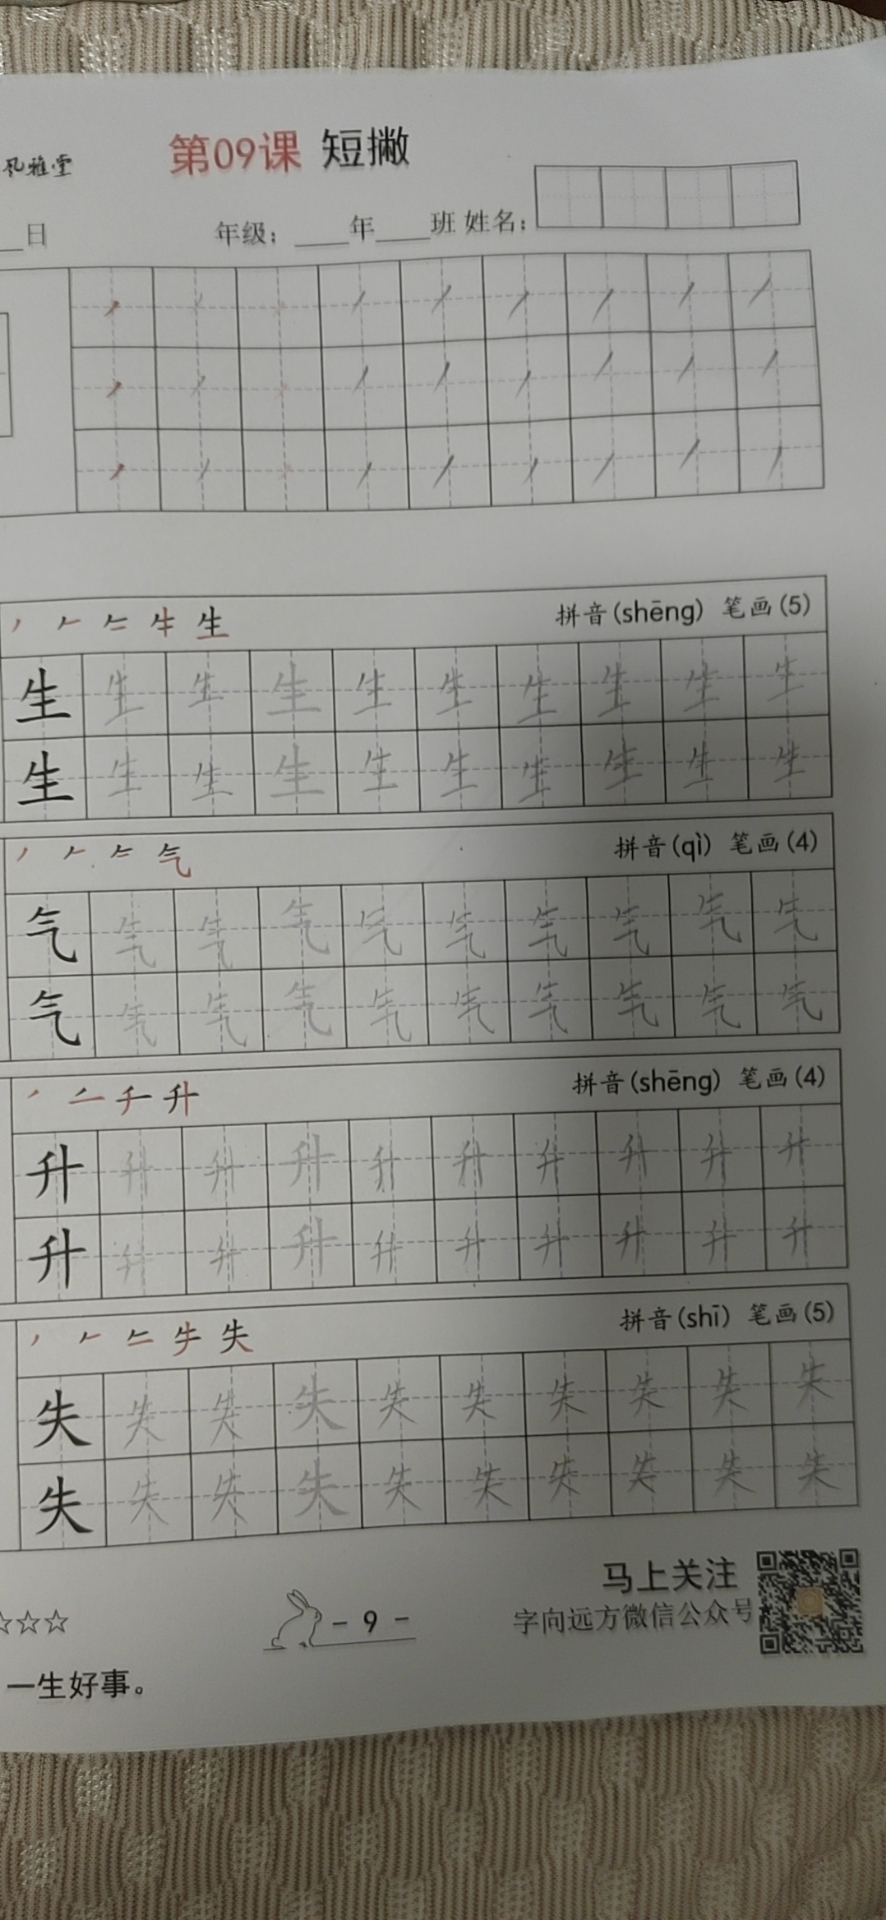 风雅堂
第09课 短撇
__日 年级：____年____班 姓名：
生 拼音(shēng) 笔画(5)
生 生 生 生 生 生 生 生 生 生
生 生 生 生 生 生 生 生 生 生
气 拼音(qì) 笔画(4)
气 气 气 气 气 气 气 气 气 气
气 气 气 气 气 气 气 气 气 气
升 拼音(shēng) 笔画(4)
升 升 升 升 升 升 升 升 升 升
升 升 升 升 升 升 升 升 升 升
失 拼音(shī) 笔画(5)
失 失 失 失 失 失 失 失 失 失
失 失 失 失 失 失 失 失 失 失
马上关注
字向远方微信公众号
☆☆☆
- 9 -
一生好事。